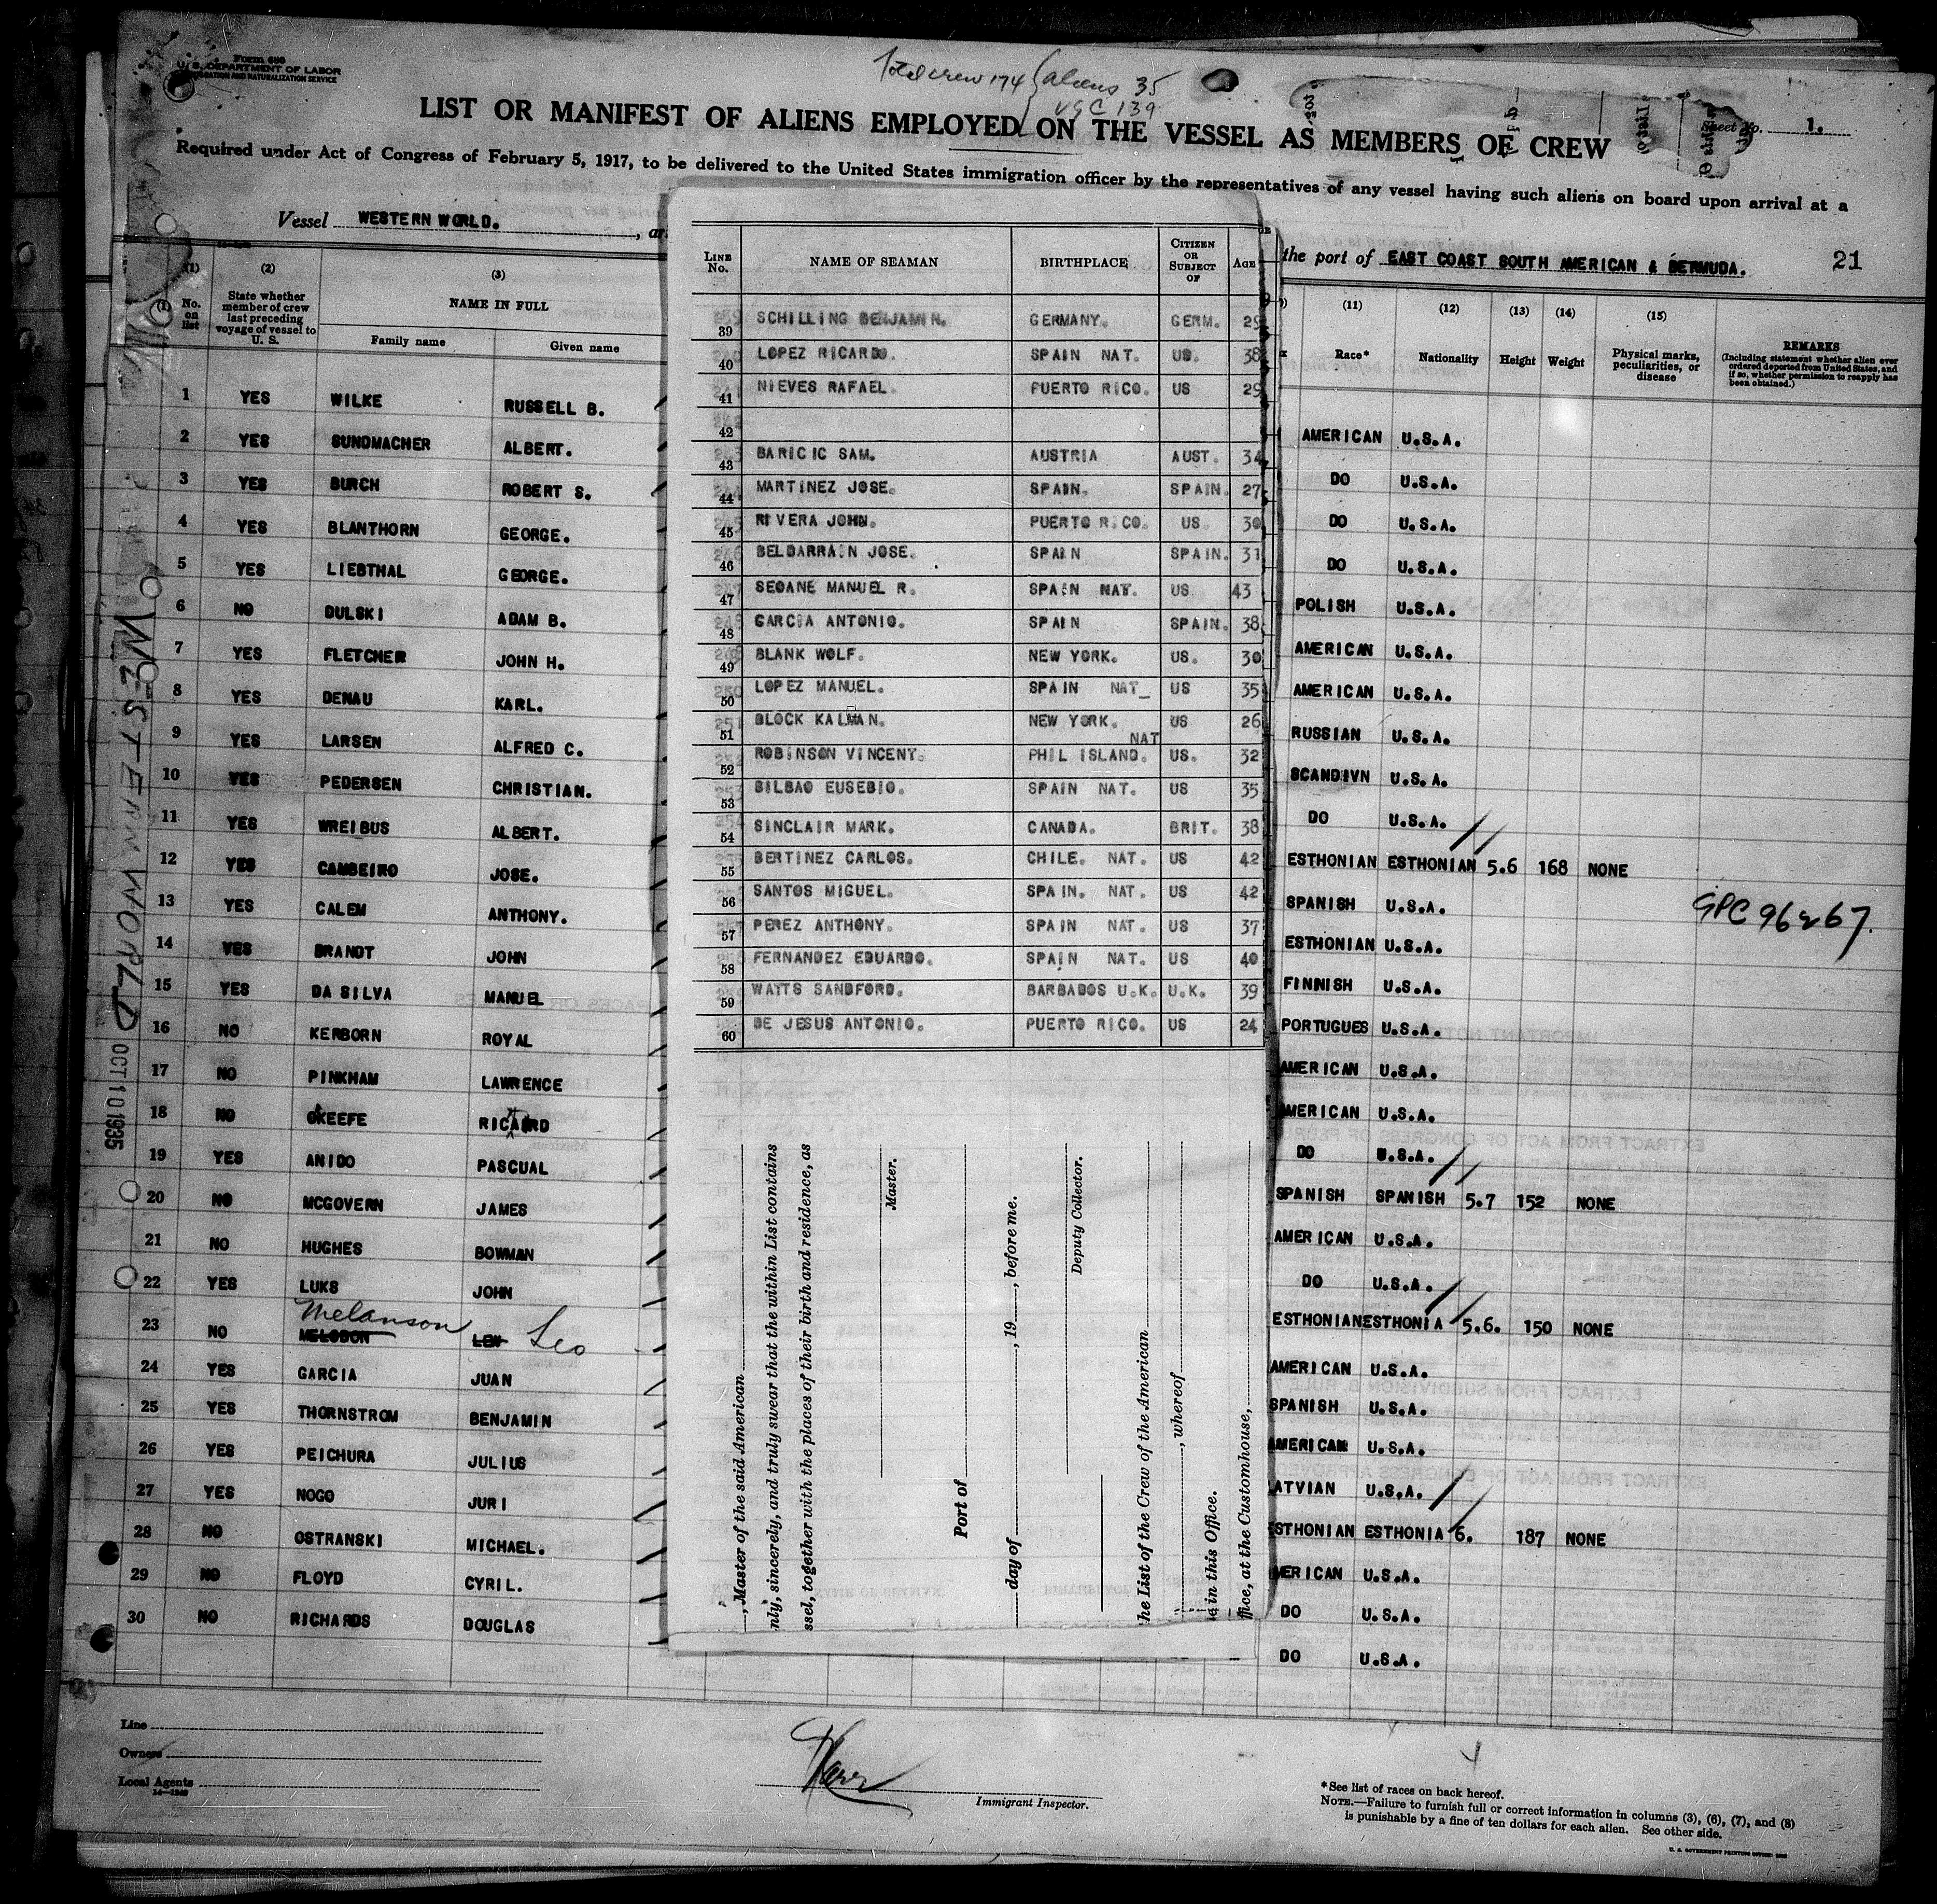 Form 680
U. S. DEPARTMENT OF LABOR
IMMIGRATION AND NATURALIZATION SERVICE
Total crew 174 { aliens 35
USC 139
LIST OR MANIFEST OF ALIENS EMPLOYED ON THE VESSEL AS MEMBERS OF CREW
Sheet No. 1.
Required under Act of Congress of February 5, 1917, to be delivered to the United States immigration officer by the representatives of any vessel having such aliens on board upon arrival at a
Vessel WESTERN WORLD. , ar
the port of EAST COAST SOUTH AMERICAN & BERMUDA. 21
(1) No. on list
(2) State whether member of crew last preceding voyage of vessel to U. S.
(3) NAME IN FULL
Family name Given name
1 YES WILKE RUSSELL B.
2 YES SUNDMACHER ALBERT.
3 YES BURCH ROBERT S.
4 YES BLANTHORN GEORGE.
5 YES LIEBTHAL GEORGE.
6 NO DULSKI ADAM B.
7 YES FLETCHER JOHN H.
8 YES DENAU KARL.
9 YES LARSEN ALFRED C.
10 YES PEDERSEN CHRISTIAN.
11 YES WREIBUS ALBERT.
12 YES CAMBEIRO JOSE.
13 YES CALEM ANTHONY.
14 YES BRANDT JOHN
15 YES DA SILVA MANUEL
16 NO KERBORN ROYAL
17 NO PINKHAM LAWRENCE
18 NO OKEEFE RICARD
19 YES ANIDO PASCUAL
20 NO MCGOVERN JAMES
21 NO HUGHES BOWMAN
22 YES LUKS JOHN
Melanson
23 NO MELODON LEN Leo
24 YES GARCIA JUAN
25 YES THORNSTROM BENJAMIN
26 YES PEICHURA JULIUS
27 YES NOGO JURI
28 NO OSTRANSKI MICHAEL.
29 NO FLOYD CYRIL.
30 NO RICHARDS DOUGLAS
WESTERN WORLD OCT 10 1935
LINE No. NAME OF SEAMAN BIRTHPLACE CITIZEN OR SUBJECT OF AGE
39 SCHILLING BENJAMIN. GERMANY. GERM. 29
40 LOPEZ RICARDO. SPAIN NAT. US. 38
41 NIEVES RAFAEL. PUERTO RICO. US 29
42
43 BARICIC SAM. AUSTRIA AUST. 34
44 MARTINEZ JOSE. SPAIN. SPAIN. 27
45 RIVERA JOHN. PUERTO RICO. US. 30
46 BELDARRAIN JOSE. SPAIN SPAIN. 31
47 SEOANE MANUEL R. SPAIN NAT. US 43
48 GARCIA ANTONIO. SPAIN SPAIN. 38
49 BLANK WOLF. NEW YORK. US. 30
50 LOPEZ MANUEL. SPAIN NAT_ US 35
51 BLOCK KALMAN. NEW YORK. US 26
NAT
52 ROBINSON VINCENT. PHIL ISLAND. US. 32
53 BILBAO EUSEBIO. SPAIN NAT. US 35
54 SINCLAIR MARK. CANADA. BRIT. 38
55 BERTINEZ CARLOS. CHILE. NAT. US 42
56 SANTOS MIGUEL. SPAIN. NAT. US 42
57 PEREZ ANTHONY. SPAIN NAT. US 37
58 FERNANDEZ EDUARDO. SPAIN NAT. US 40
59 WATTS SANDFORD. BARBADOS U.K. U.K. 39
60 DE JESUS ANTONIO. PUERTO RICO. US 24
, Master of the said American
nly, sincerely, and truly swear that the within List contains
ssel, together with the places of their birth and residence, as
Master.
Port of
day of , 19 , before me.
Deputy Collector.
he List of the Crew of the American
, whereof
in this Office.
ffice, at the Customhouse,
(11) Race* (12) Nationality (13) Height (14) Weight (15) Physical marks, peculiarities, or disease
REMARKS
(Including statement whether alien ever ordered deported from United States, and if so, whether permission to reapply has been obtained.)
AMERICAN U.S.A.
DO U.S.A.
DO U.S.A.
DO U.S.A.
POLISH U.S.A.
AMERICAN U.S.A.
AMERICAN U.S.A.
RUSSIAN U.S.A.
SCANDIVN U.S.A.
DO U.S.A.
ESTHONIAN ESTHONIAN 5.6 168 NONE
SPANISH U.S.A.
ESTHONIAN U.S.A.
FINNISH U.S.A.
PORTUGUES U.S.A.
AMERICAN U.S.A.
AMERICAN U.S.A.
DO U.S.A.
SPANISH SPANISH 5.7 152 NONE
AMERICAN U.S.A.
DO U.S.A.
ESTHONIAN ESTHONIA 5.6. 150 NONE
AMERICAN U.S.A.
SPANISH U.S.A.
AMERICAN U.S.A.
ATVIAN U.S.A.
STHONIAN ESTHONIA 6. 187 NONE
MERICAN U.S.A.
DO U.S.A.
DO U.S.A.
Line
Owners
Local Agents
Immigrant Inspector.
*See list of races on back hereof.
NOTE.—Failure to furnish full or correct information in columns (3), (6), (7), and (8)
is punishable by a fine of ten dollars for each alien. See other side.
U. S. GOVERNMENT PRINTING OFFICE